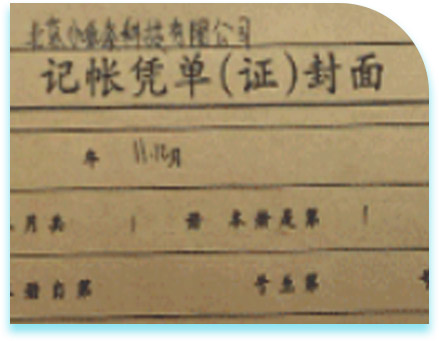 北京小 科技有限公司
记帐凭单(证)封面
年 11.12月
月共 1 册 本册是第 1
册自第 号至第 号